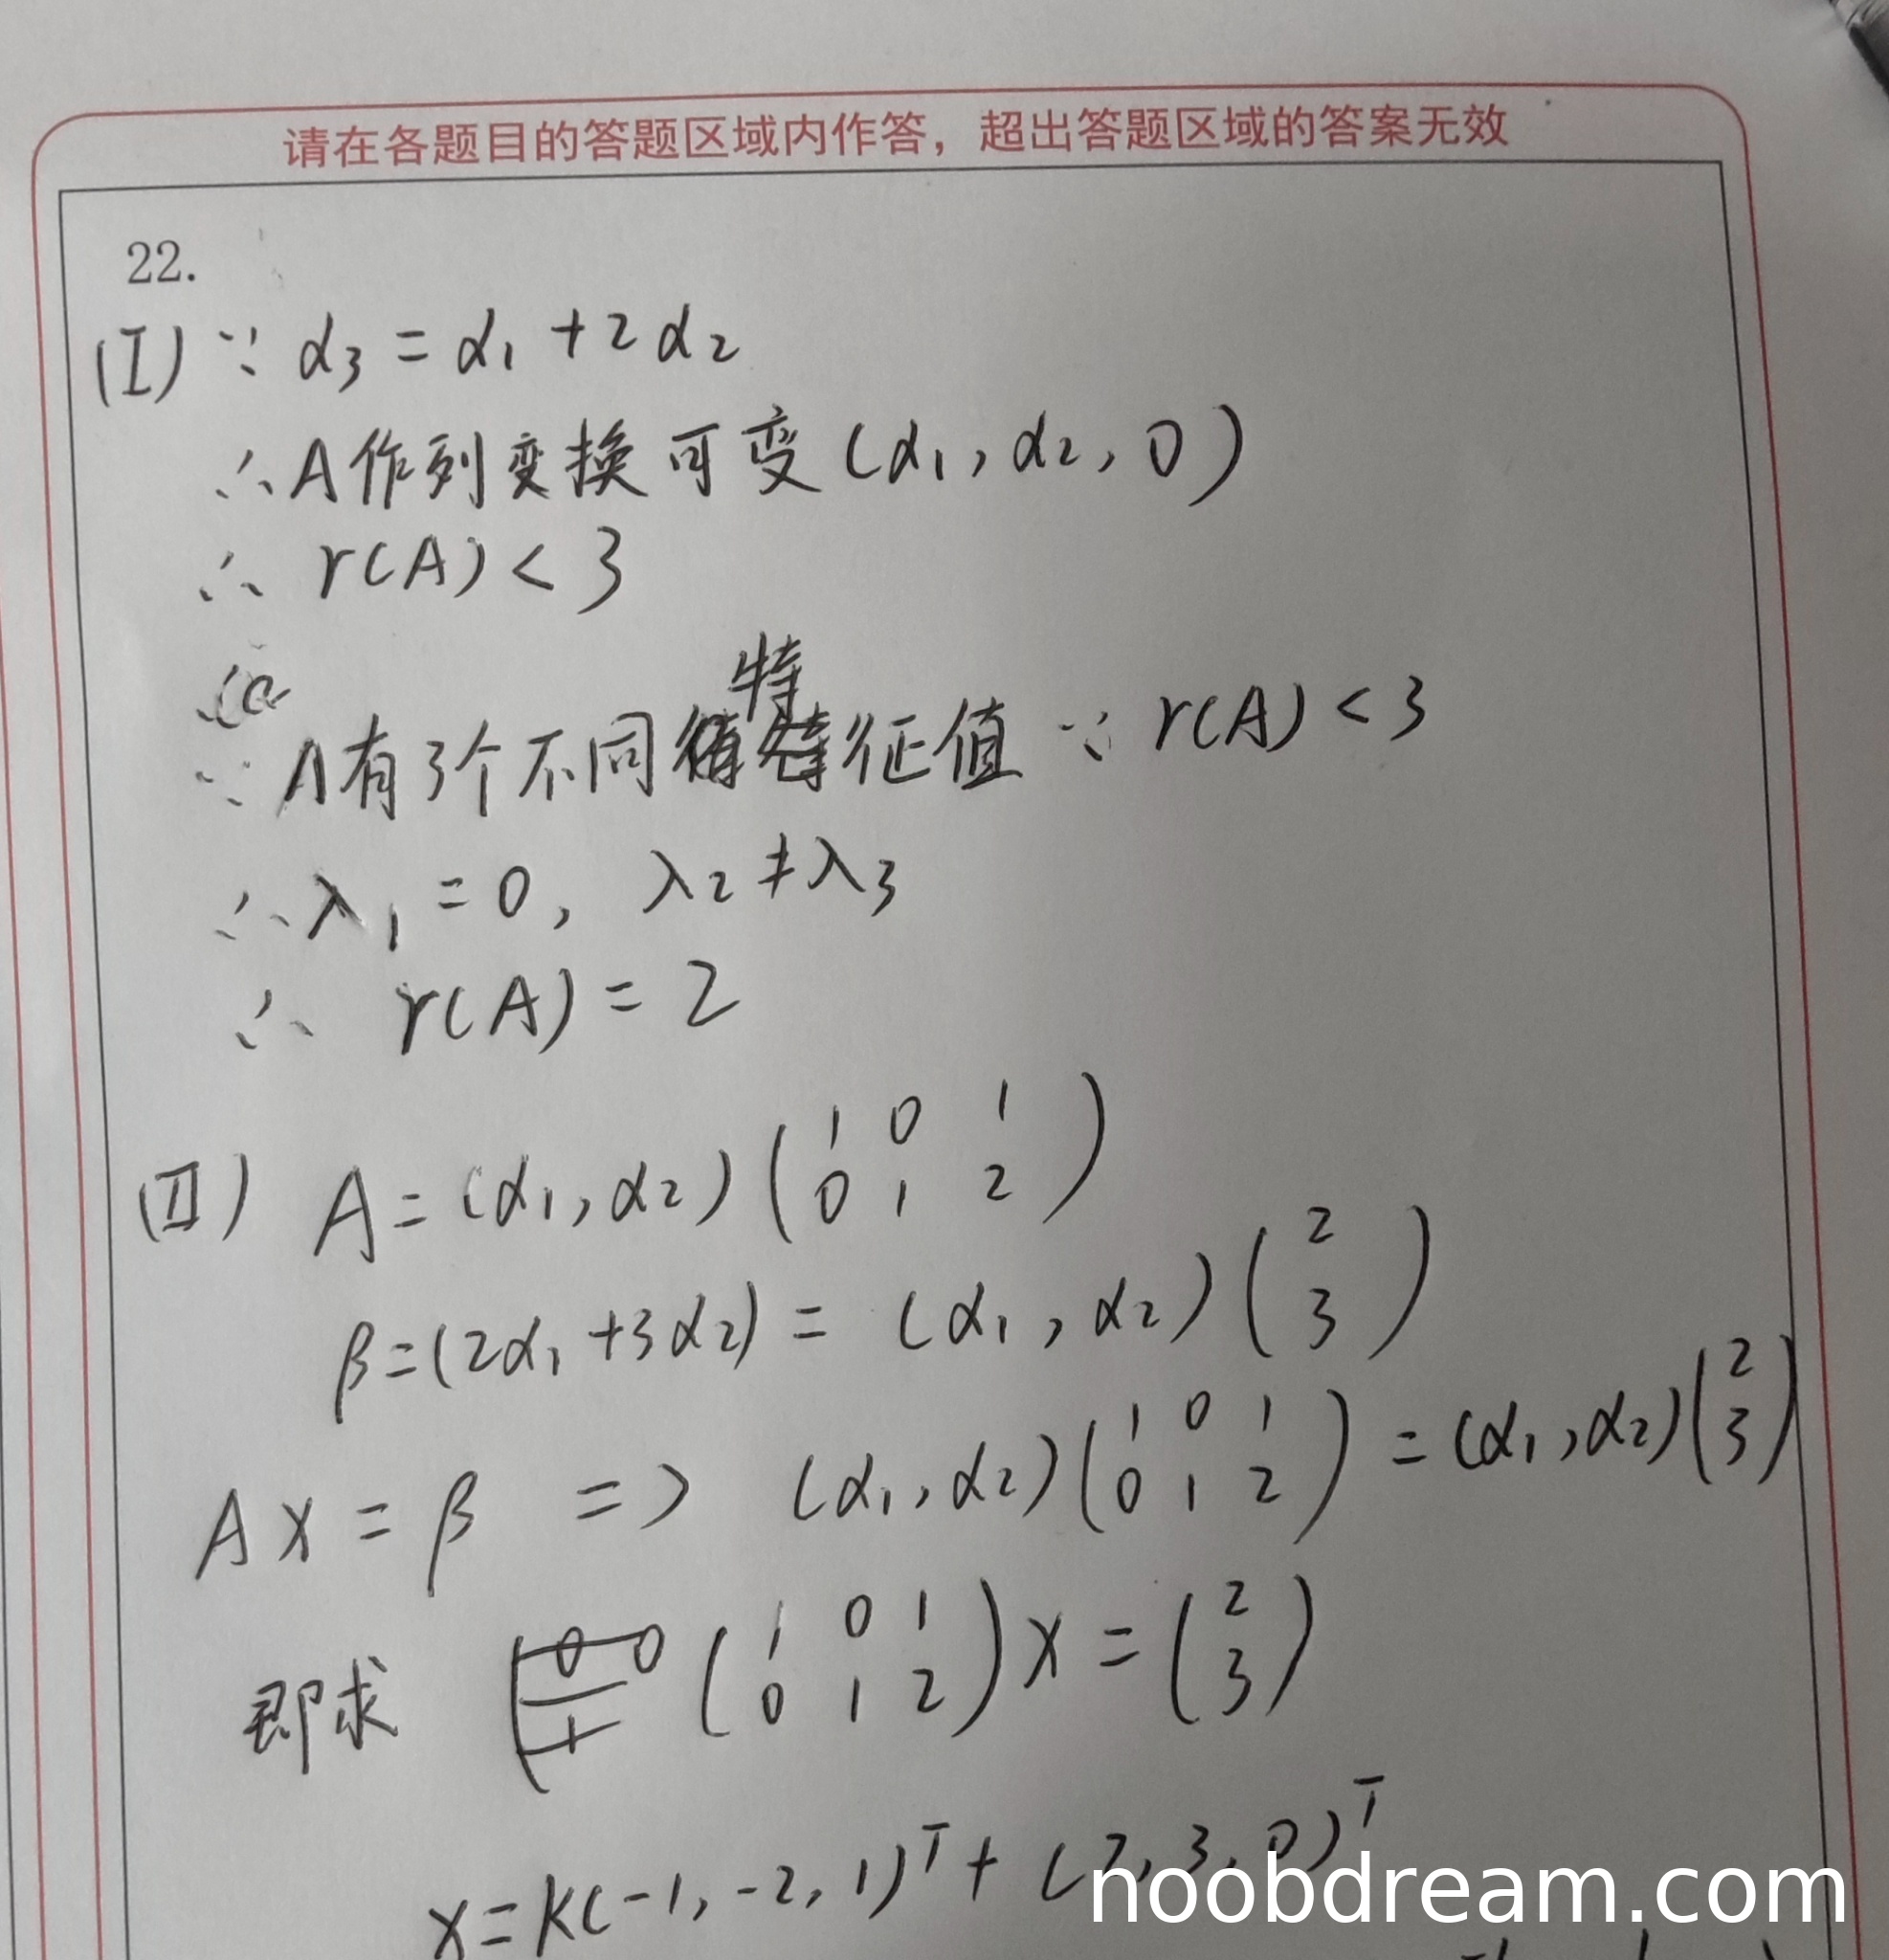 请在各题目的答题区域内作答，超出答题区域的答案无效
22.
(I) ∵ α₃ = α₁ + 2α₂
∴ A作列变换可变(α₁, α₂, 0)
∴ r(A) < 3
∵ A有3个不同特征值 ∵ r(A) < 3
∴ λ₁ = 0, λ₂ ≠ λ₃
∴ r(A) = 2
(II) A = (α₁, α₂) (1 0 1
0 1 2)
β = (2α₁ + 3α₂) = (α₁, α₂) (2
3)
AX = β => (α₁, α₂) (1 0 1
0 1 2) = (α₁, α₂) (2
3)
即求 (1 0 1
0 1 2) X = (2
3)
X = K(-1, -2, 1)ᵀ + (2, 3, 0)ᵀ
noobdream.com